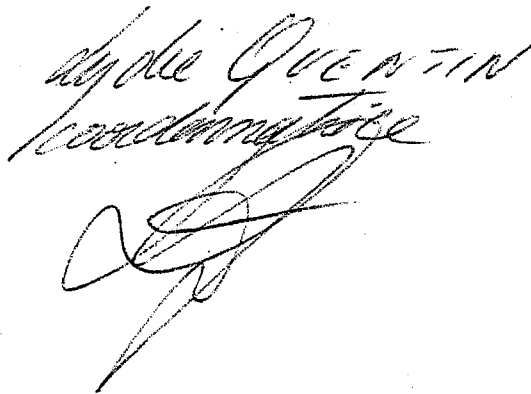 Lydie QUENTIN
coordonnatrice